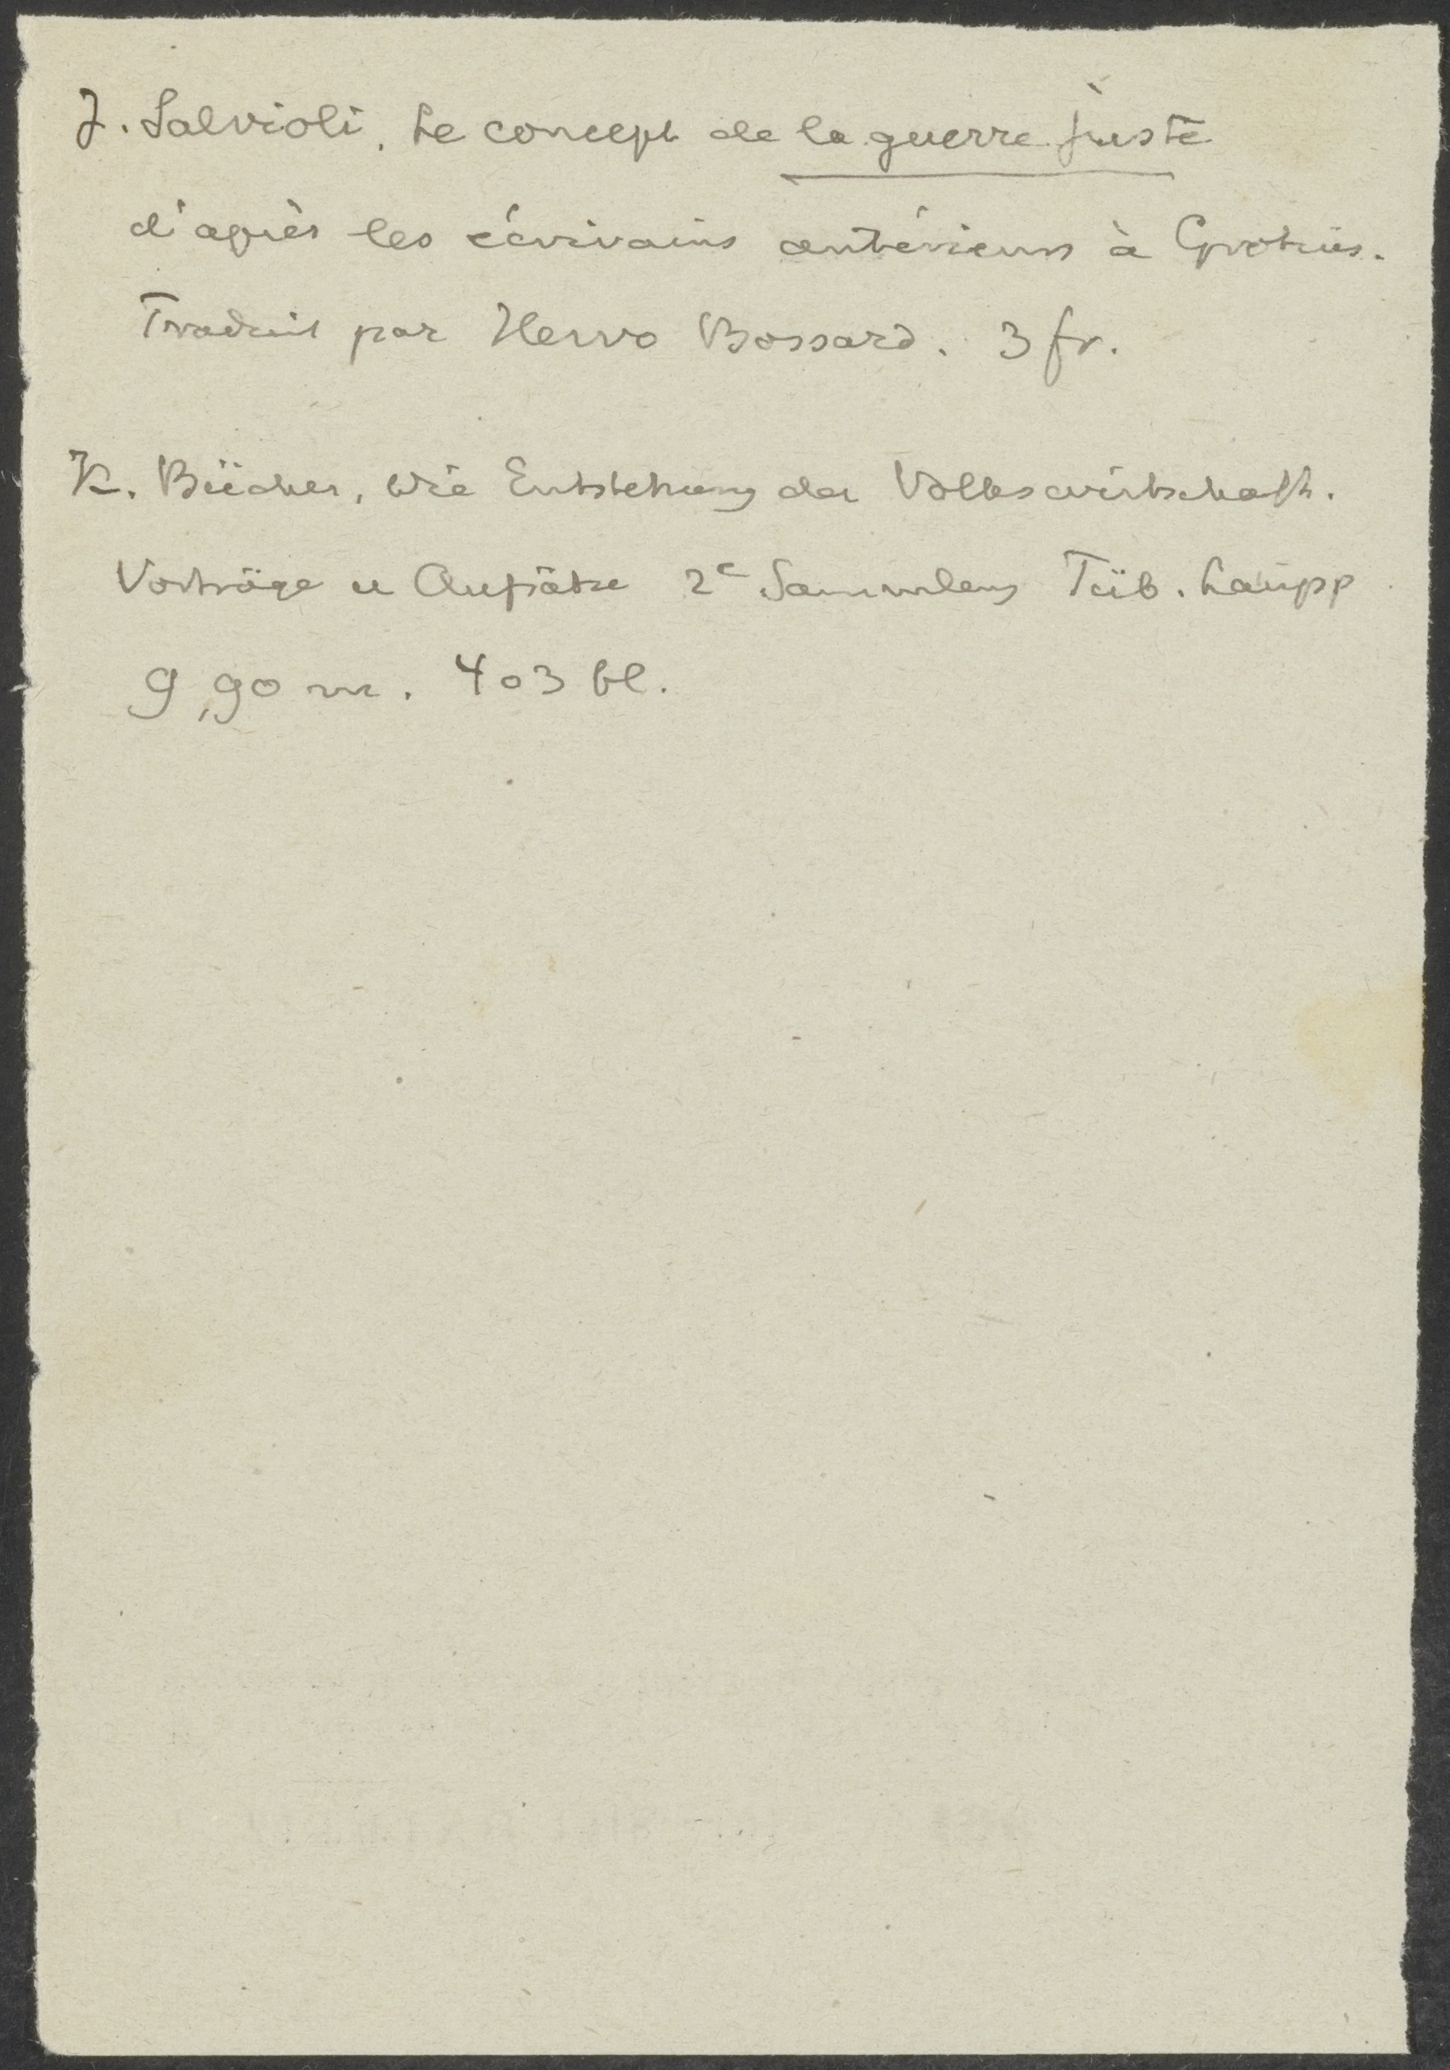 J. Salvioli, Le concept de la guerre juste
d'après les écrivains antérieurs à Grotius.
Traduit par Hervo Bossard. 3 fr.
K. Bücher, Die Entstehung der Volkswirtschaft.
Vorträge u Aufsätze 2e Sammlung Tüb. Laupp
9,90 m. 403 bl.